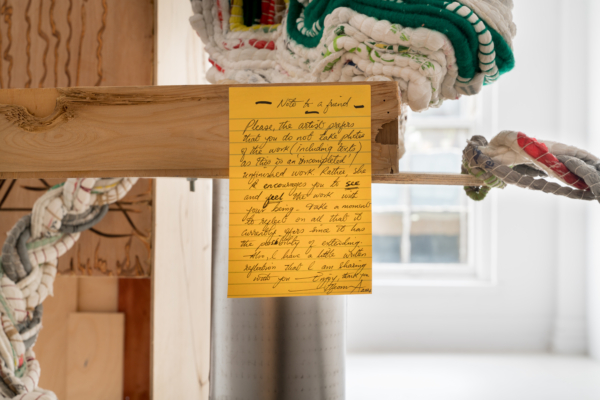 — Note to a friend —
Please, the artist prefers
that you do not take photos
of the work (including texts)
as this is an uncompleted/
unfinished work. Rather, she
encourages you to see
and feel the work with
your being. Take a moment
to reflect on all that it
currently offers since it has
the possibility of extending
— Also, I have a little written
reflection that I am sharing
with you — Enjoy, thank you